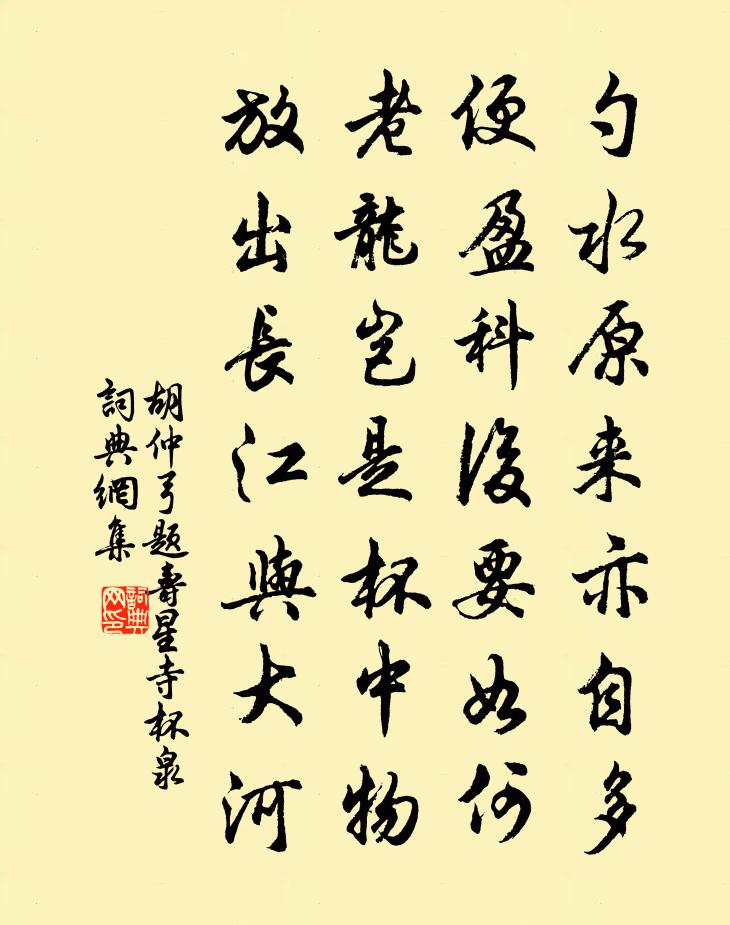 勺水原来亦自多
便盈科後要如何
老龍豈是杯中物
放出長江與大河
胡仲弓题壽星寺杯泉
詞典網集
詞典网印